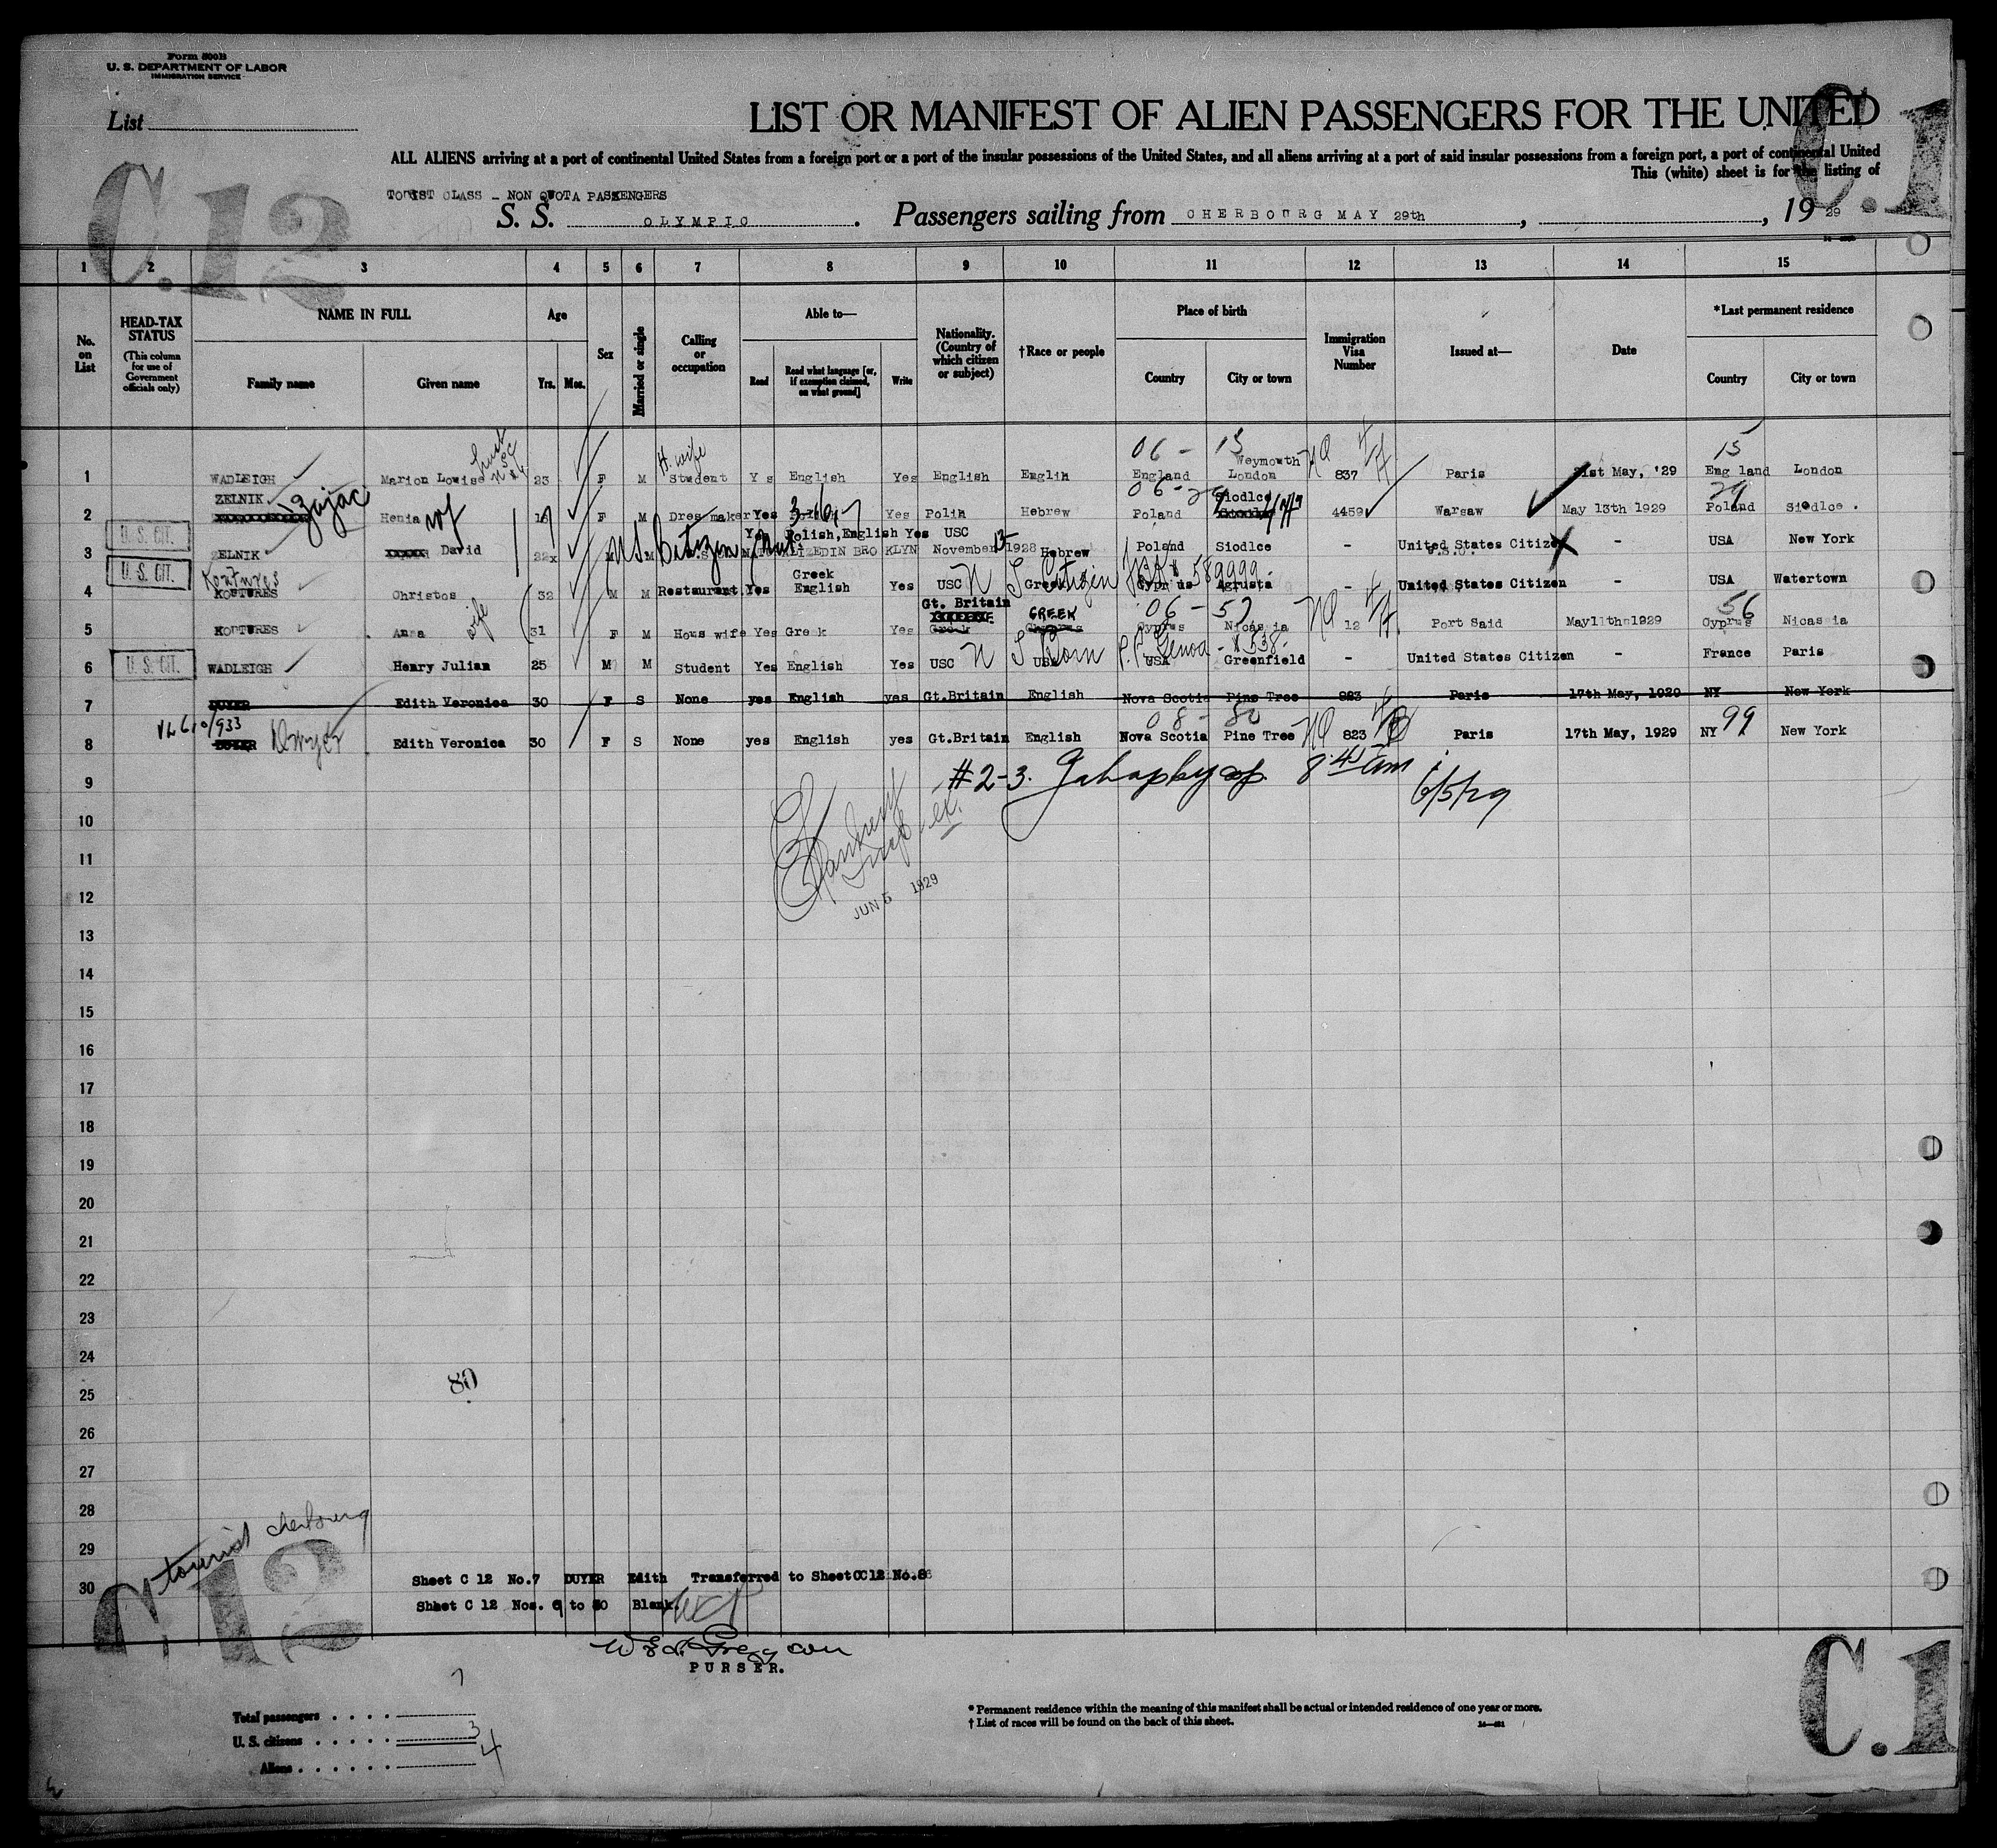 Form 500B
U. S. DEPARTMENT OF LABOR
IMMIGRATION SERVICE
List
LIST OR MANIFEST OF ALIEN PASSENGERS FOR THE UNITED
C.1
ALL ALIENS arriving at a port of continental United States from a foreign port or a port of the insular possessions of the United States, and all aliens arriving at a port of said insular possessions from a foreign port, a port of continental United
This (white) sheet is for the listing of
C.12
TOURIST CLASS - NON QUOTA PASSENGERS
S. S. OLYMPIC. Passengers sailing from CHERBOURG MAY 29th, , 19 29
1 2 3 4 5 6 7 8 9 10 11 12 13 14 15
No. on List
HEAD-TAX STATUS (This column for use of Government officials only)
NAME IN FULL
Family name Given name
Age
Yrs. Mos.
Sex
Married or single
Calling or occupation
Able to—
Read Read what language [or, if exemption claimed, on what ground] Write
Nationality. (Country of which citizen or subject)
†Race or people
Place of birth
Country City or town
Immigration Visa Number
Issued at—
Date
*Last permanent residence
Country City or town
H. wife 06 - 15 Weymouth NQ 15
1 WADLEIGH Marion Lowise 23 F M Student Y s English Yes English Englih England London 837 Paris 21st May, '29 Eng land London
ZELNIK Zajac 06 - Siodlce 29
2 Henia wf F M Dres maker Yes Yes Polih Hebrew Poland 4459 Warsaw May 13th 1929 Poland Siedlce.
U. S. CIT. Yes Polish, English Yes USC
3 ZELNIK David 22x M M US Citizen NATURALIZEDIN BRO KLYN November 13 1928 Hebrew Poland Siodlce - United States Citizen - USA New York
U. S. CIT. Kontures Greek
4 KOUTURES Christos 32 M M Restaurant Yes English Yes USC N S Citizen Greek Cyprus Agrusta 589999 - United States Citizen - USA Watertown
wife Gt. Britain GREEK 06 - 57 NQ 56
5 KOUTURES Anna 31 F M Hous wife Yes Greek Yes Greek Cyprus Nicas ia 12 Port Said May11th1929 Cyprus Nicas ia
U. S. CIT.
6 WADLEIGH Henry Julian 25 M M Student Yes English Yes USC N S Born USA P.P. Genoa # 538 USA Greenfield - United States Citizen - France Paris
7 DUYER Edith Veronica 30 F S None yes English yes Gt.Britain English Nova Scotia Pine Tree 823 Paris 17th May, 1929 NY New York
08 - 80 NQ 99
8 DUYER Dwyer Edith Veronica 30 F S None yes English yes Gt.Britain English Nova Scotia Pine Tree 823 Paris 17th May, 1929 NY New York
9 #2-3. 8 45 am 6/5/29
10
11
12 JUN 5 1929
13
14
15
16
17
18
19
20
21
22
23
24
25 80
26
27
28
29 tourist cherbourg
30 Sheet C 12 No.7 DUYER Edith Transferred to Sheet C 12 No.8
Shhet C 12 Nos. 9 to 30 Blank.
C.12
PURSER.
Total passengers 7
U. S. citizens 3
Aliens 4
* Permanent residence within the meaning of this manifest shall be actual or intended residence of one year or more.
† List of races will be found on the back of this sheet.
C.1